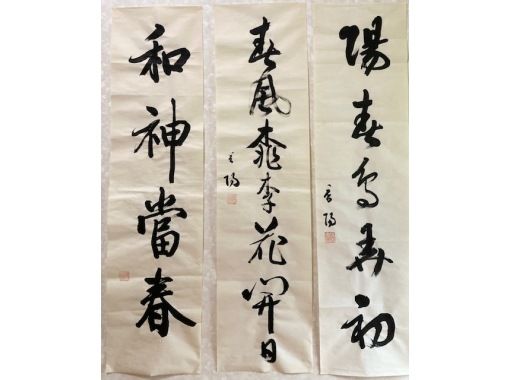 陽春初
春風桃李花開日
和神當春